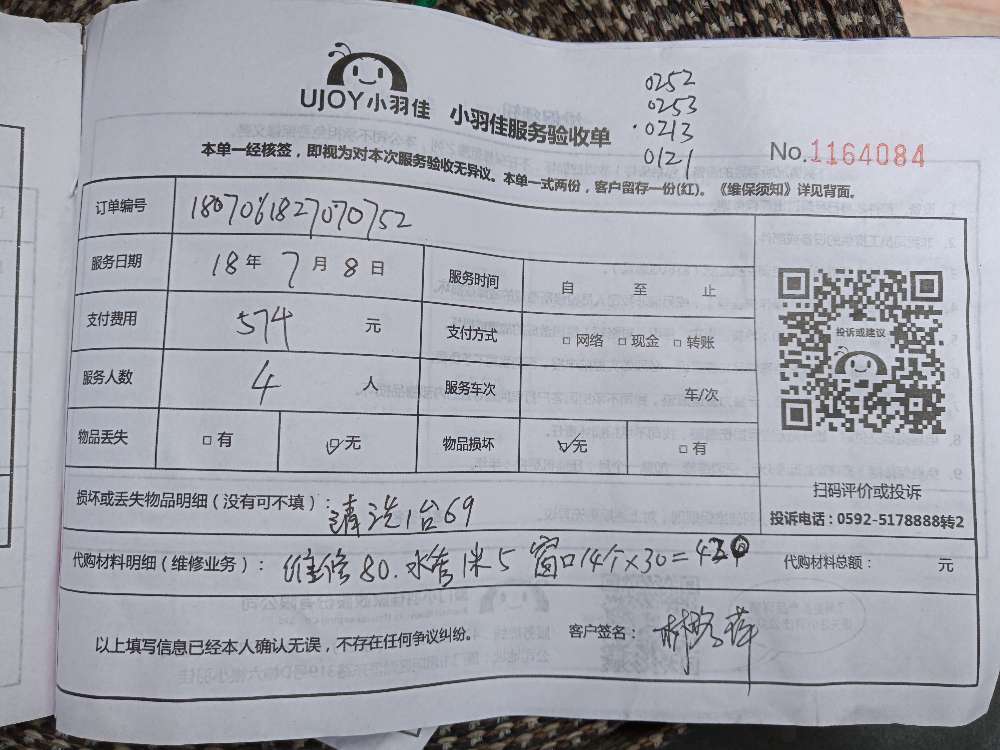 UJOY小羽佳 小羽佳服务验收单
0252
0253
0213
0121
No.1164084
本单一经核签，即视为对本次服务验收无异议。本单一式两份，客户留存一份(红)。《维保须知》详见背面。
订单编号 1807061827070752
服务日期 18年7月8日 服务时间 自 至 止
支付费用 574 元 支付方式 □网络 □现金 □转账
服务人数 4 人 服务车次 车/次
物品丢失 □有 ☑无 物品损坏 ☑无 □有
投诉或建议
扫码评价或投诉
投诉电话：0592-5178888转2
损坏或丢失物品明细（没有可不填）：清洗1台69
代购材料明细（维修业务）：维修80.水管1米5 窗口14个×30=420 代购材料总额： 元
以上填写信息已经本人确认无误，不存在任何争议纠纷。 客户签名：